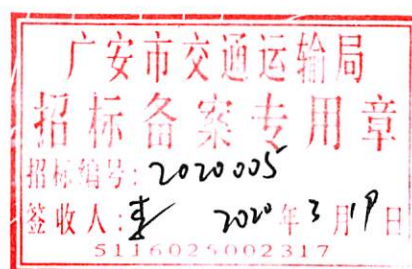 广安市交通运输局
招标备案专用章
招标编号：2020005
签收人： 2020年3月19日
5116025002317